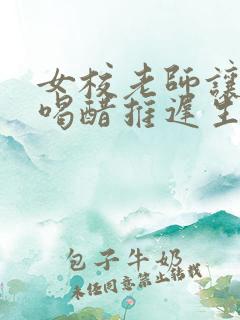 女校老師讓
喝醋推遲生
包子牛奶
未经同意禁止转载